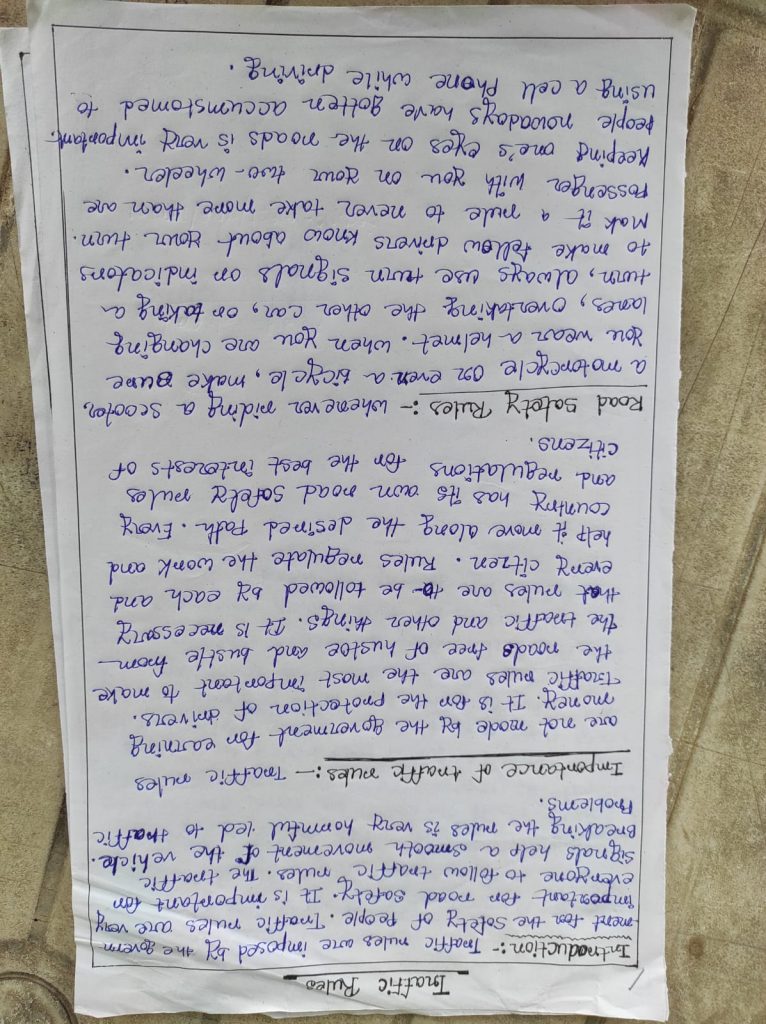 Traffic Rules
Introduction:- Traffic rules are imposed by the govern
ment for the safety of people. Traffic rules are very
important for road safety. It is important for
everyone to follow traffic rules. The traffic
signals help a smooth movement of the vehicle.
Breaking the rules is very harmful led to traffic
Problems.
Importance of traffic rules:- Traffic rules
are not made by the goverment for earning
money. It is for the protection of drivers.
Traffic rules are the most important to make
the roads free of hustoe and bustle from
the traffic and other things. It is necessary
that rules are to be followed by each and
every citizen. Rules regulate the work and
help it move along the desired Path. Every
country has its own road safety rules
and regulations for the best interests of
citizens.
Road Safety Rules:- whenever riding a scooter,
a motorcycle or even a bicycle, make sure
you wear a helmet. when you are changing
lanes, overtaking the other car, or taking a
turn, always use turn signals or indicators
to make fellow drivers know about your turn.
Mak it a rule to never take more than are
Passenger with you on your two-wheeler.
Keeping one's eyes on the roads is very important.
People nowadays have gotten accumstomed to
using a cell Phone while driving.